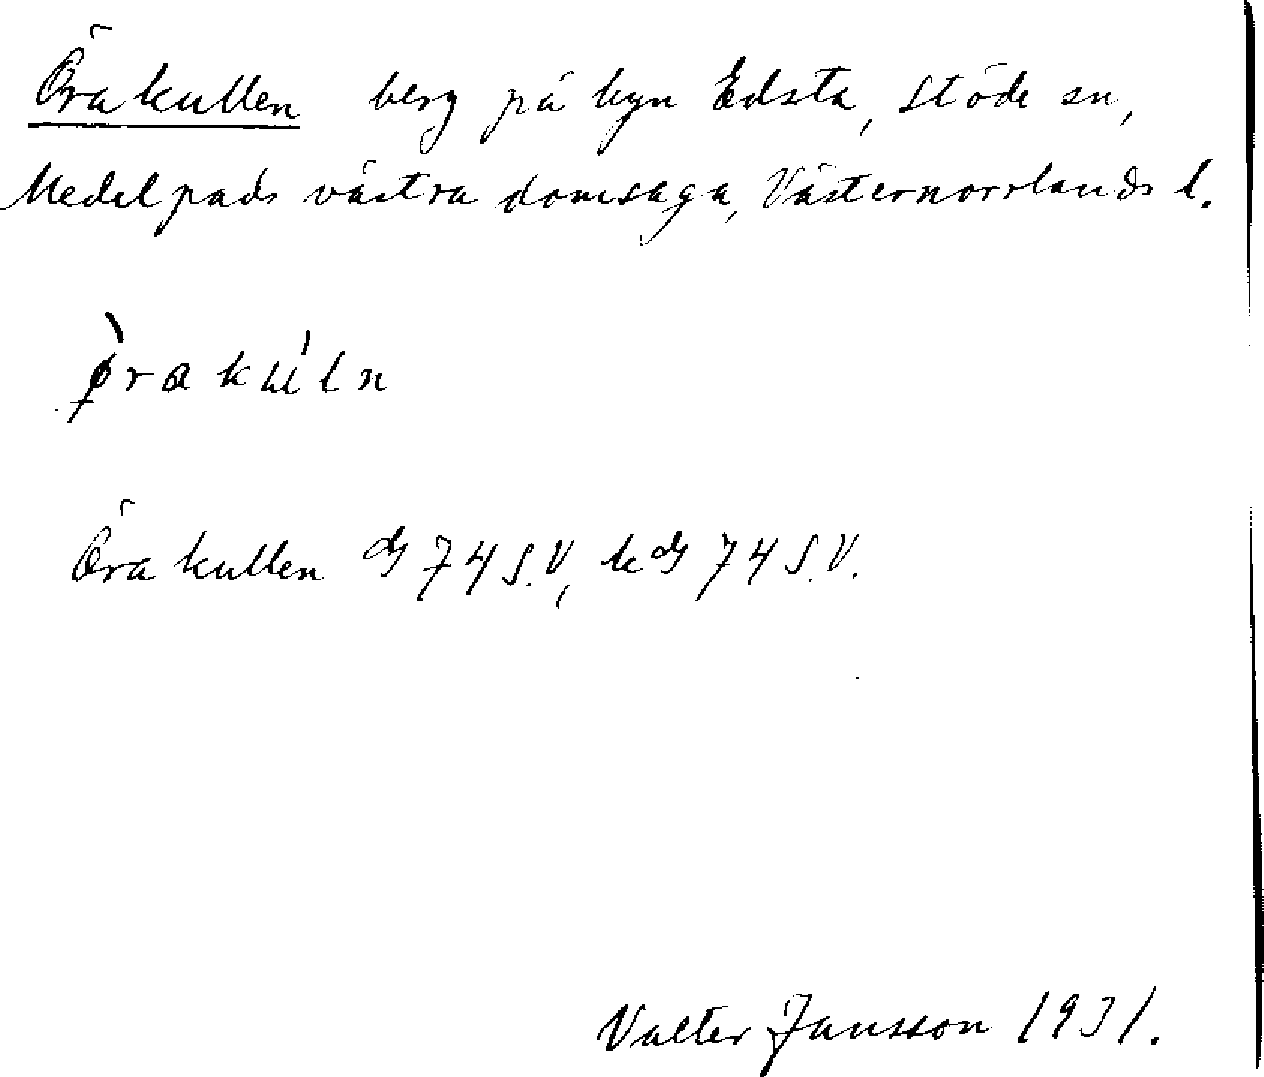 Örakullen berg på byn Edsta, Stöde sn,
Medelpads västra domsaga, Västernorrlands l.
ø̀rakúln
Örakullen ds 74 S.V, kds 74 S.V.
Valter Jansson 1931.